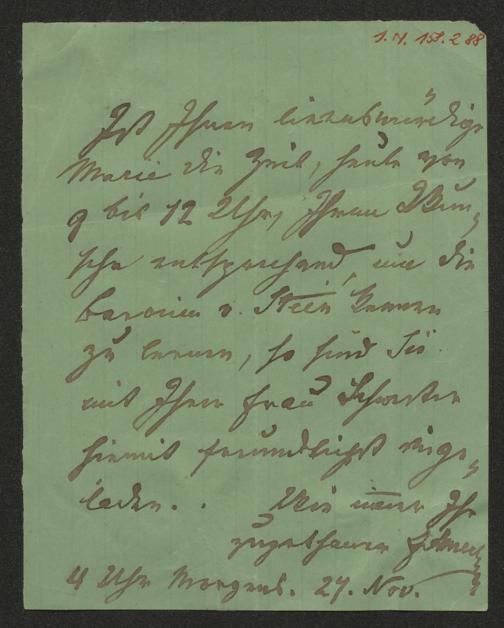 J.N. 158.288
Ist Ihnen liebenswürdige
Marie die Zeit, heute von
9 bis 12 Uhr, Ihrem Wun-
sche entsprechend, um die
Baronin v. Stein kennen
zu lernen, so sind Sie
mit Ihrer Frau Schwester
hiemit freundlichst einge-
laden. . Wie immer Ihr
zugethaner
4 Uhr Morgens. 27. Nov.